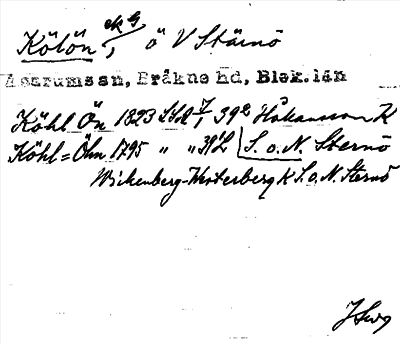 Kölön, ek G ö V Stärnö
Asarums sn, Bräkne hd, Blek. län
Köhl Ön 1823 39 Håkansson K
Köhl=Öhn 1795 " " S. o. N. Sternö
Wickenberg-Westerberg K S. o. N. Sternö